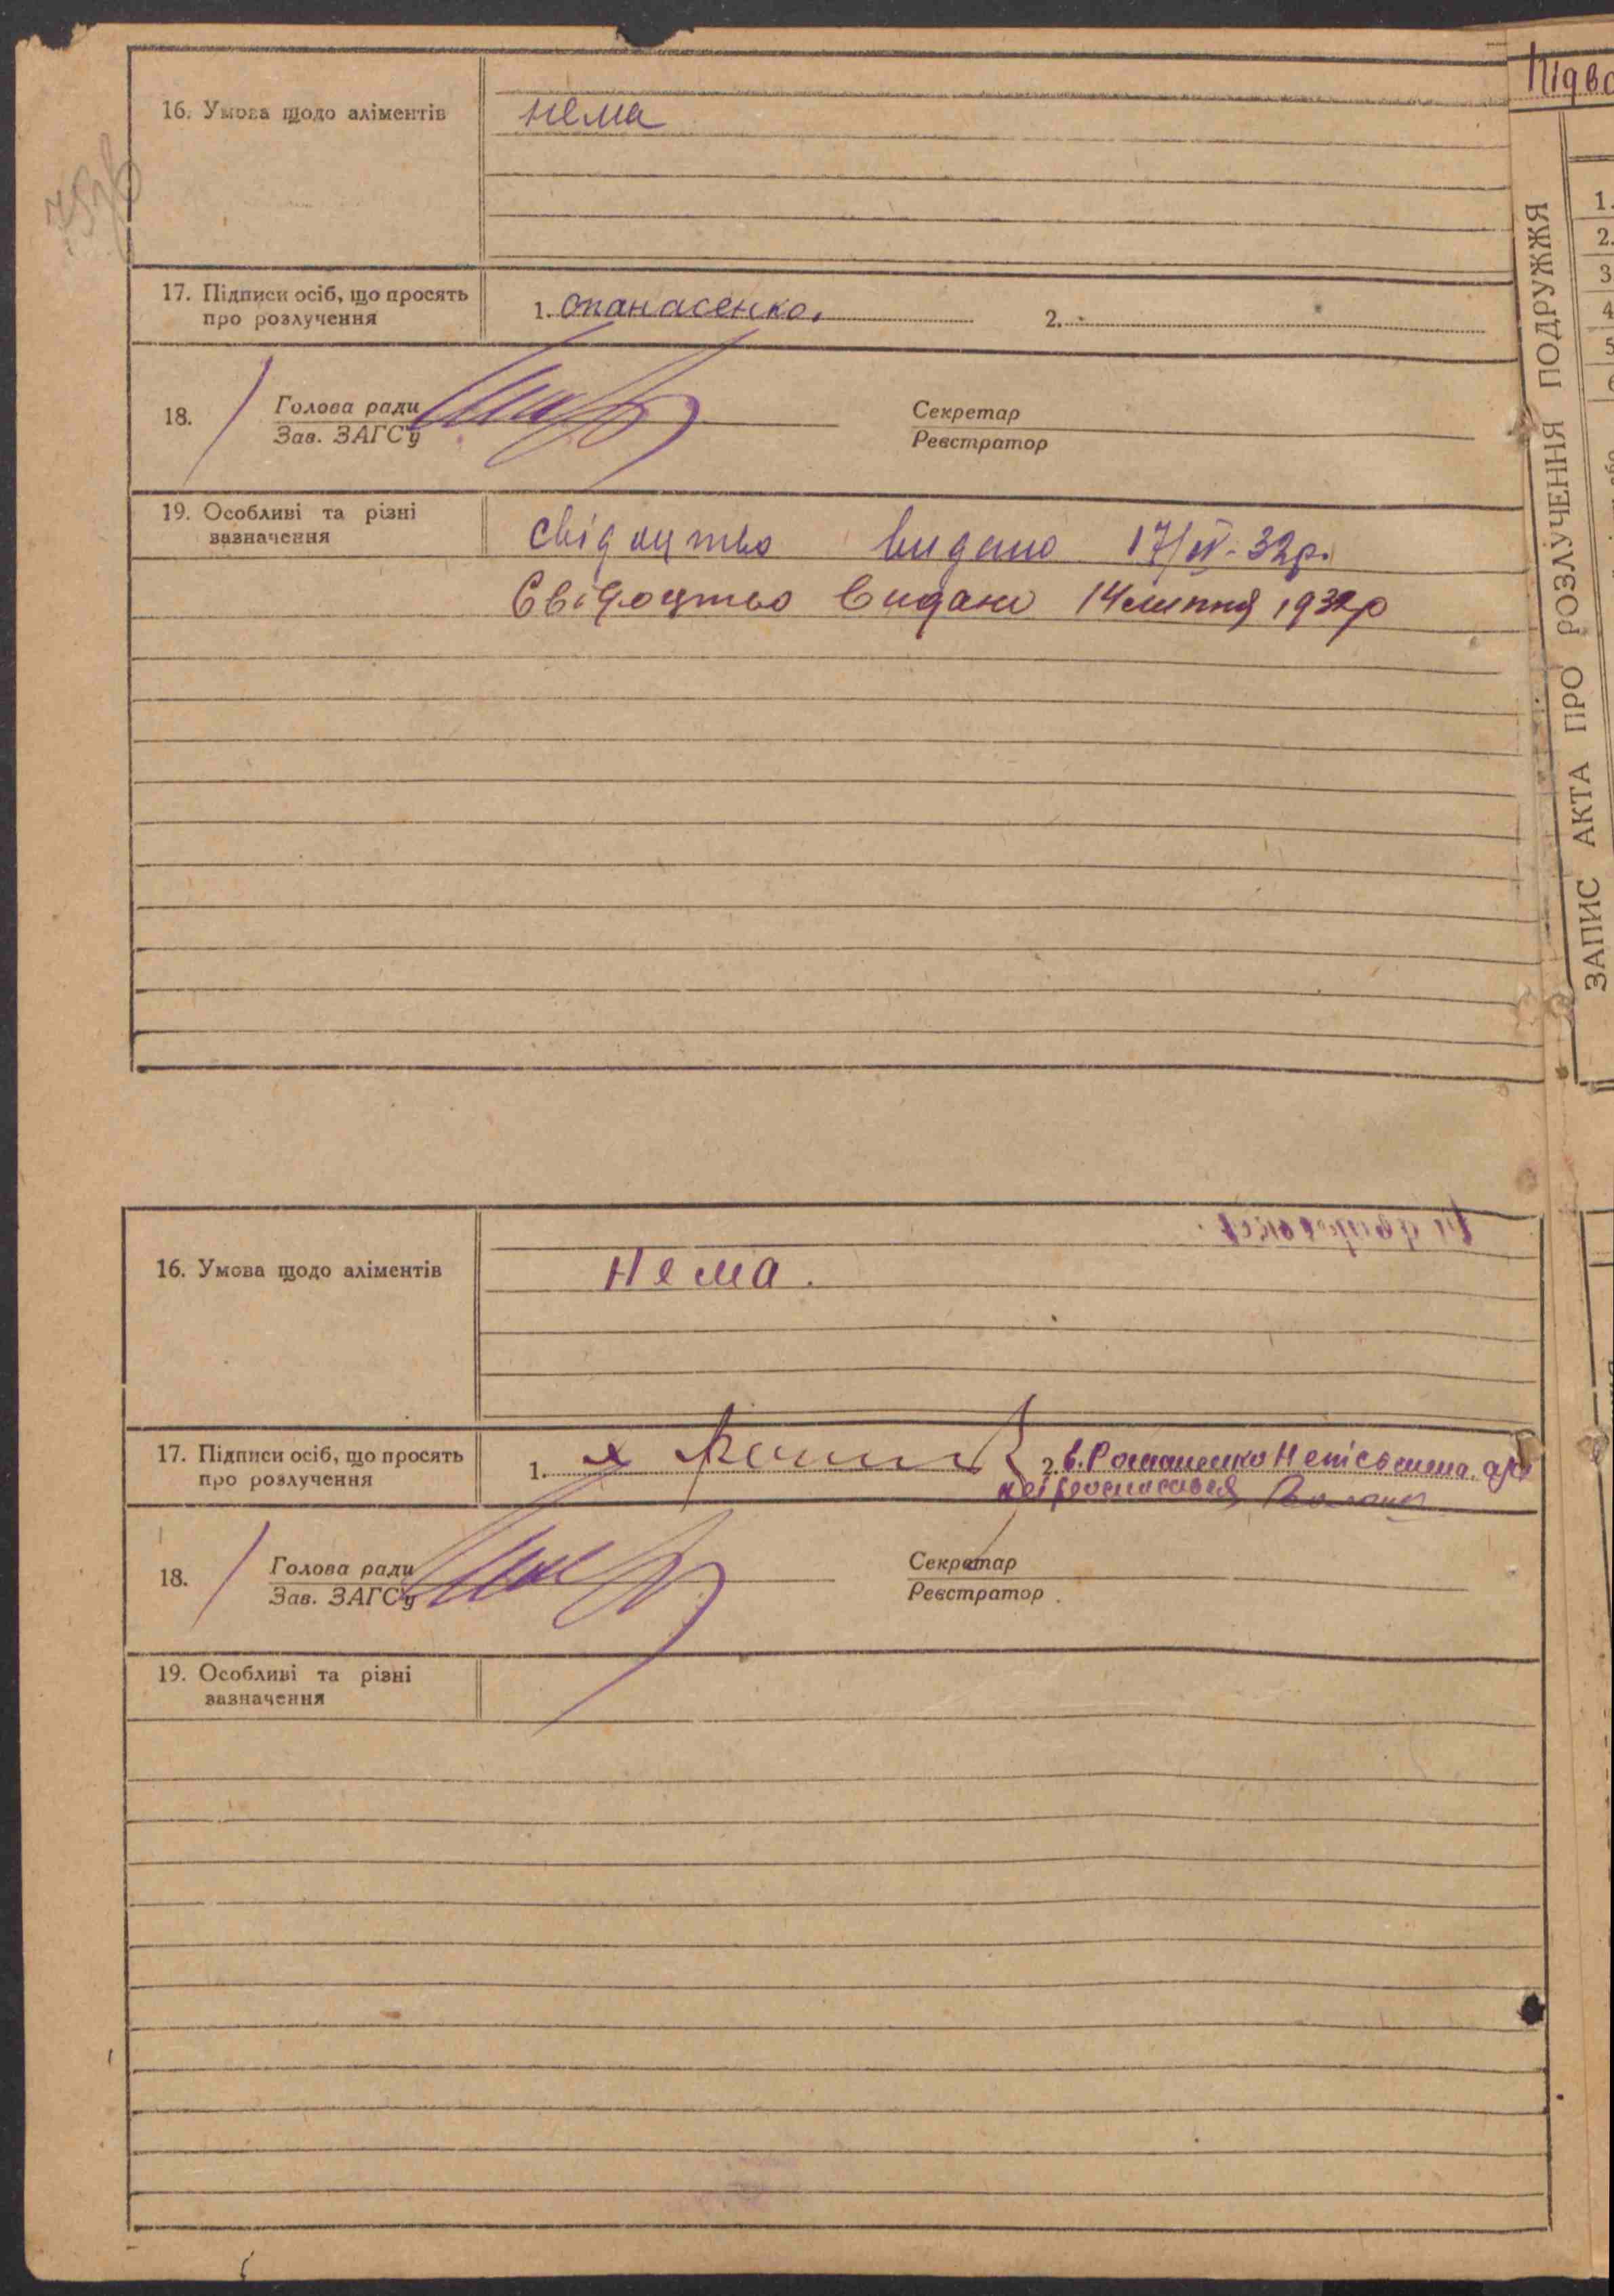 16. Умова щодо аліментів
нема
17. Підписи осіб, що просять
про розлучення
1. Опанасенко.
2.
18.
Голова ради
Зав. ЗАГСу
Секретар
Реєстратор
19. Особливі та різні
зазначення
свідоцтво видано 17/IV-32р.
Свідоцтво видано 14 липня 1932р
16. Умова щодо аліментів
Нема.
17. Підписи осіб, що просять
про розлучення
1.
2.
18.
Голова ради
Зав. ЗАГСу
Секретар
Реєстратор
19. Особливі та різні
зазначення
ЗАПИС АКТА ПРО РОЗЛУЧЕННЯ ПОДРУЖЖЯ
1.
2.
3
4
5